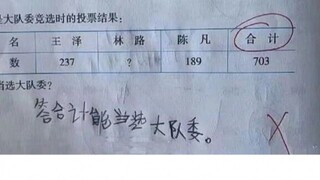 是大队委竞选时的投票结果：
名 王 泽 林 路 陈 凡 合 计
数 237 ? 189 703
当选大队委？
答合计能当选大队委。